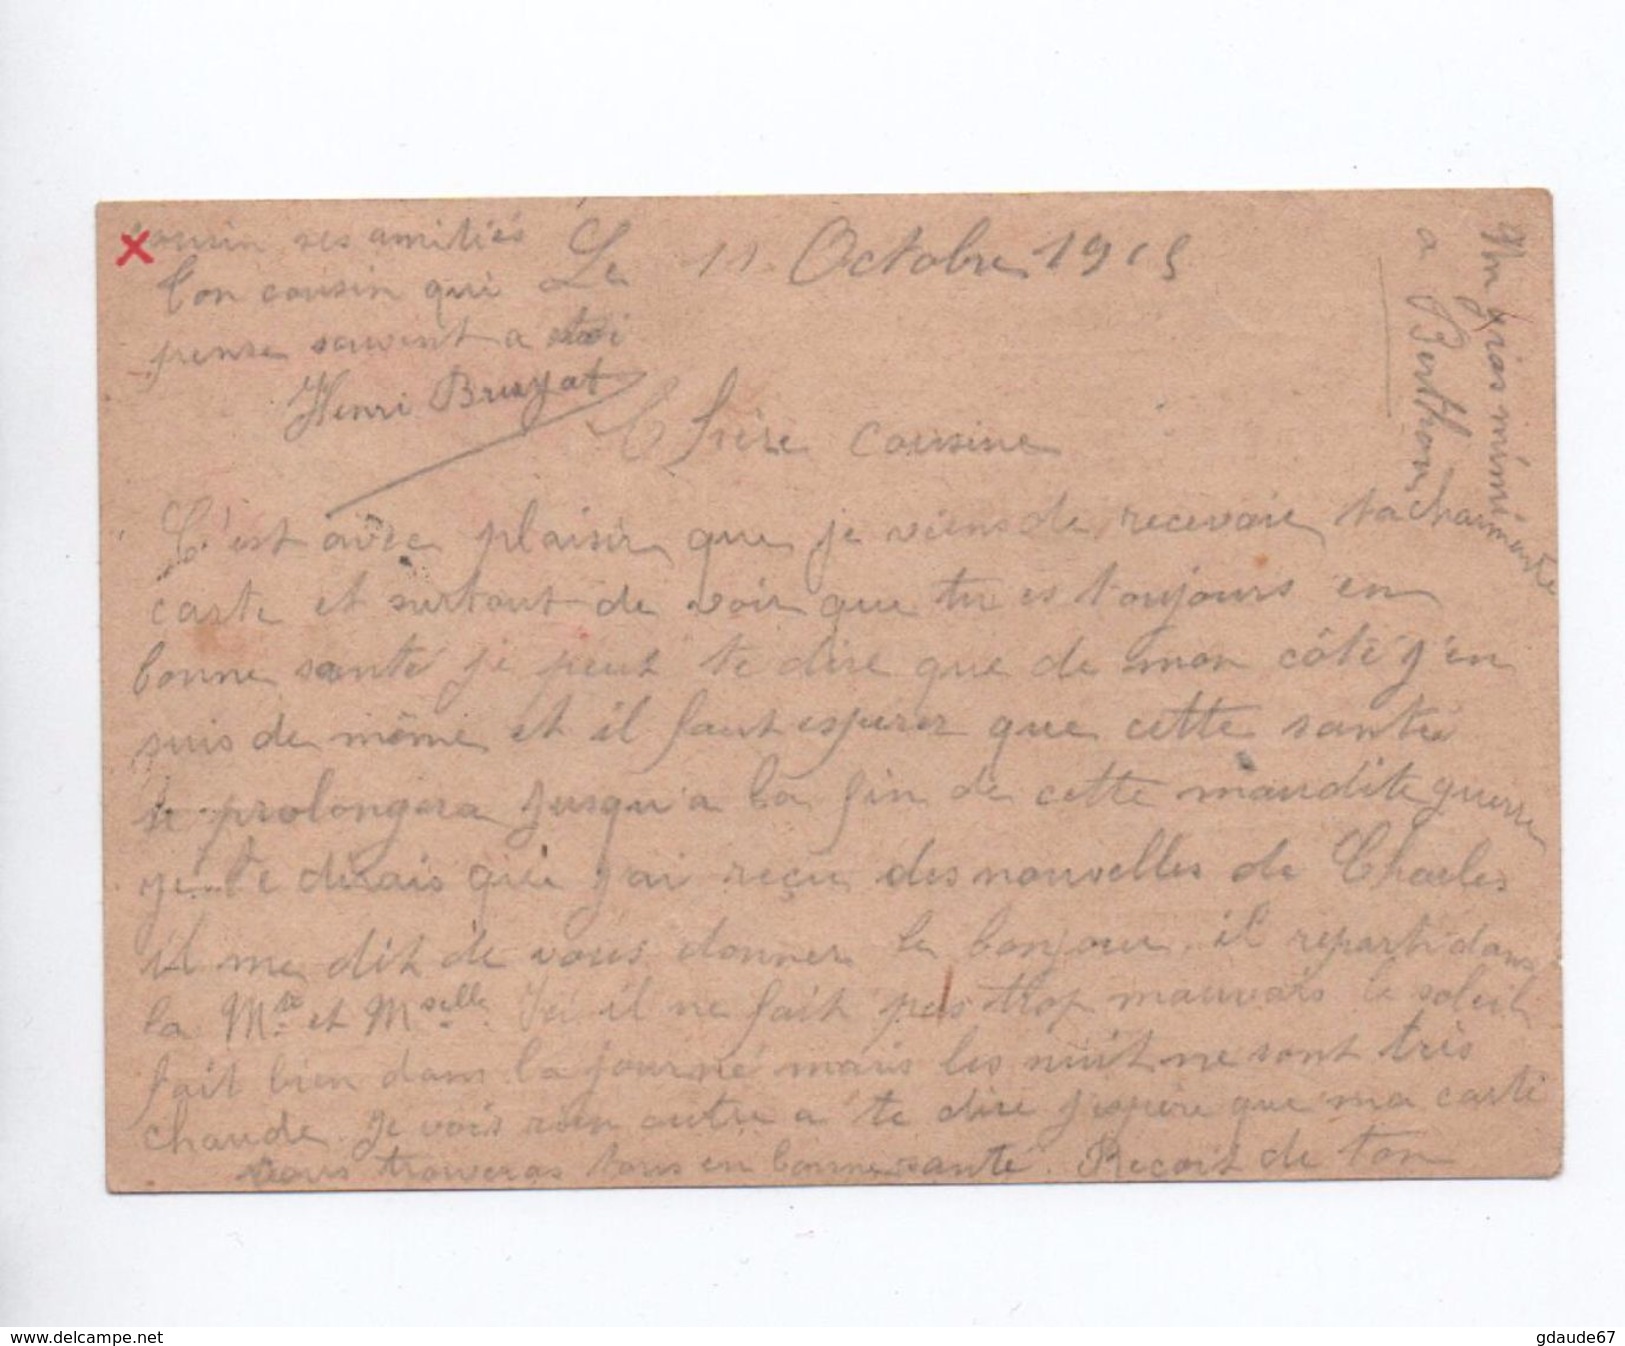 Le 11 Octobre 1915
Chère cousine
C'est avec plaisir que je viens de recevoir ta charmante
carte et surtout de voir que tu es toujours en
bonne santé je peut te dire que de mon côté j'en
suis de même et il faut esperer que cette santée
se prolongera jusqu'a la fin de cette maudite guerre
je te dirais que j'ai reçu des nouvelles de Charles
il me dit de vous donner le bonjour. il reparti dans
la Mte et Mselle. Ici il ne fait pas trop mauvais le soleil
fait bien dans la journé mais les nuit ne sont très
chaude. Je vois rien autre a te dire j'espère que ma carte
vous trouveras tous en bonne santé. Recoit de ton
cousin ses amitiés
Ton cousin qui
pense souvent a toi
Henri Bruyat
Un gros mimi
a Berthon
www.delcampe.net
gdaude67